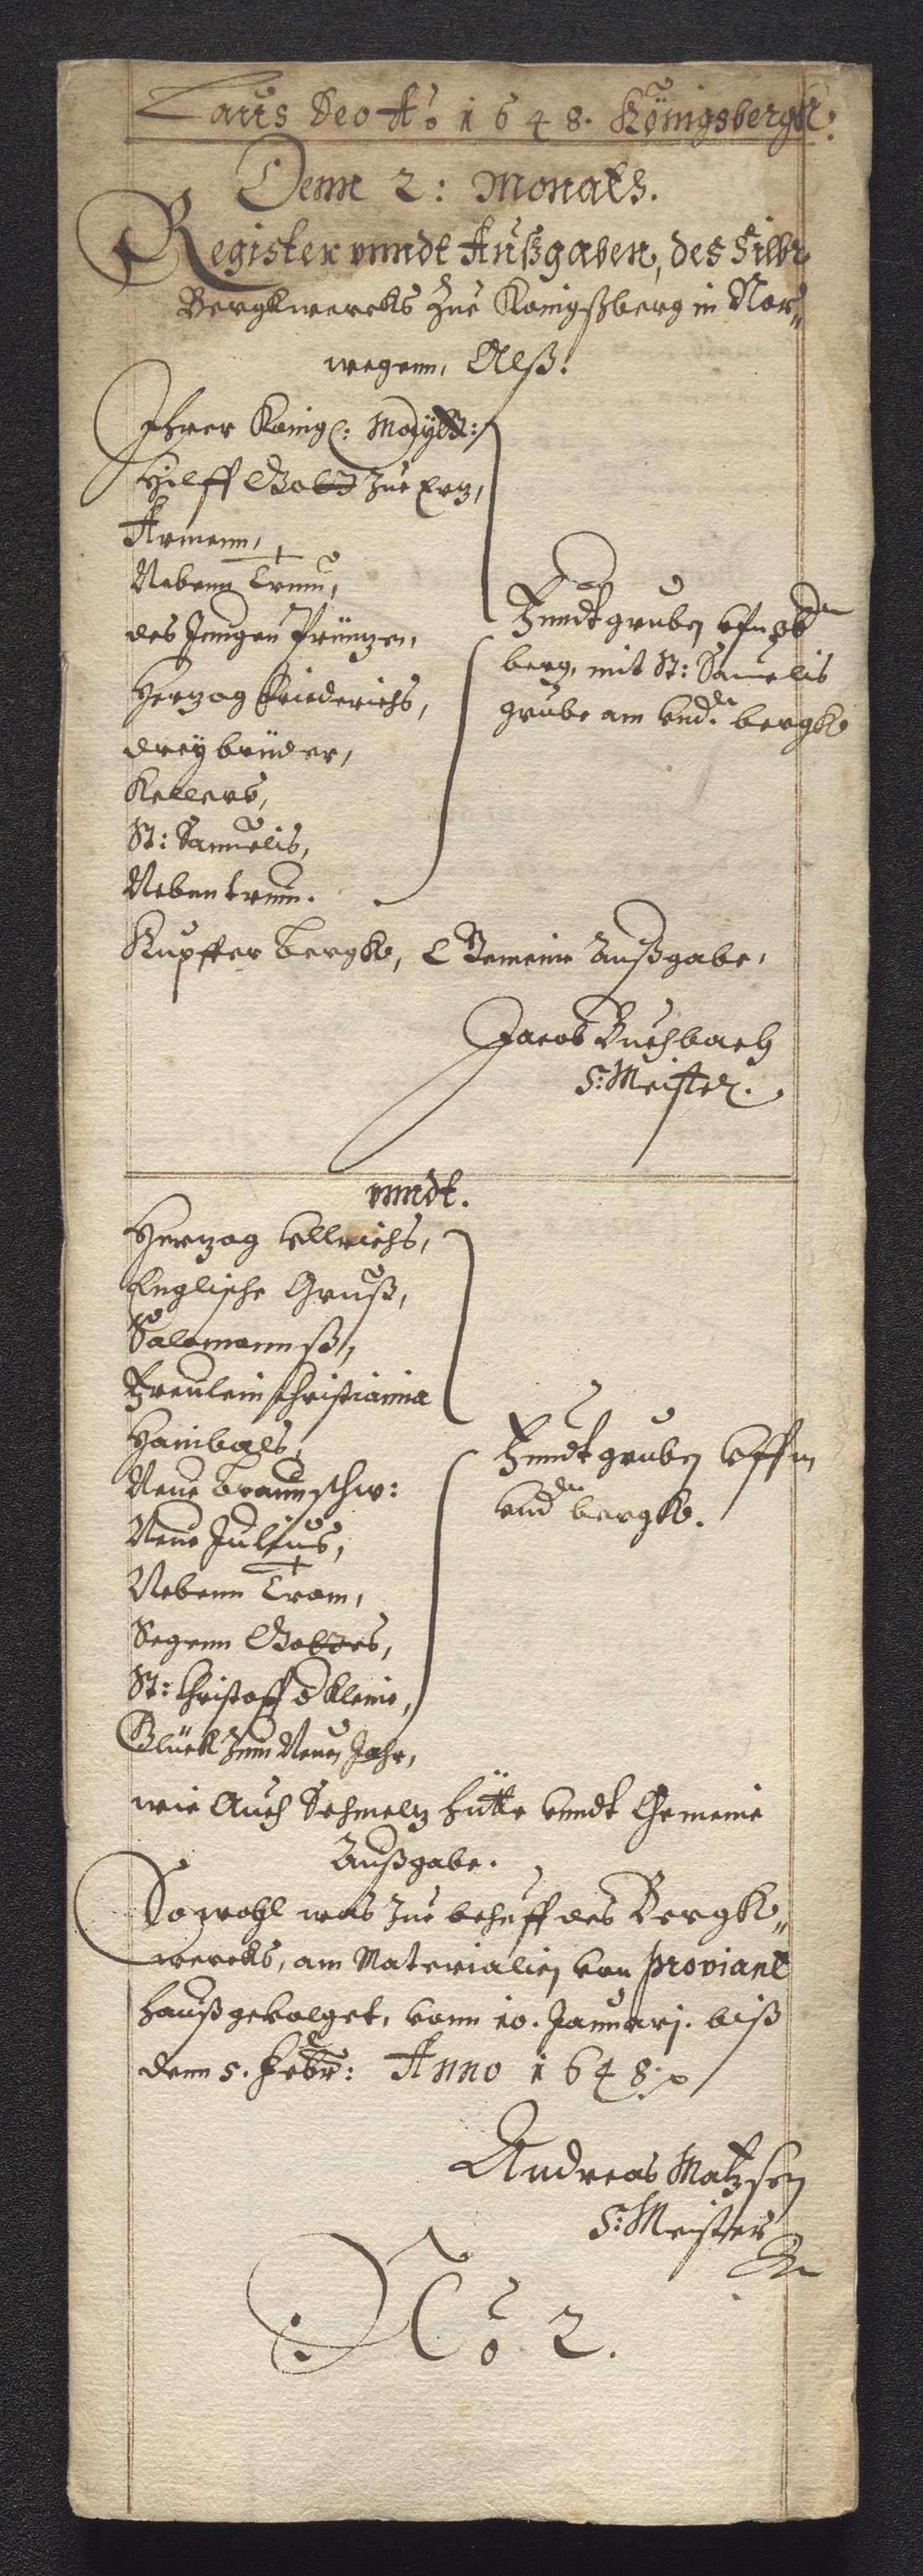 Laus Deo Aō 1648. Königsbergk:
Denn 2: Monats.
Register unndt Außgaben, des Silbr
Bergkwercks zue Konigßberg in Nor„
wegenn, Alß:
Ihrer Königl: Mayᵗᵗ:
Hilff Gottes zue Erz,
Armenn,
Nebenn Trum,
des Jungen Printzen,
Hertzog Friederichs,
drey brüder,
Kellers,
St: Samuelis,
Neben trum.
Fundtgruben ufn obⁿ
berg, mit St: Samuelis
grube am undⁿ bergk
Kupffer bergk, Gemeine Außgabe,
Jacob Buchbach
S: Meister.
unndt.
Hertzog Ullrichs,
Englische Gruß,
Salomannß,
Freulein Christianna
Hanibals,
Neue Braunschw:
Neue Julius,
Nebenn Trom,
Segenn Gottes,
St: Christoff d Kleine,
Glück zum Neuen Jahr,
Fundtgruben uffm
undⁿ bergk.
wie Auch Schmeltz hütte unndt Gemeine
Außgabe.
So wohl was zue behuff des Bergk„
wercks, am Materialien von proviant
hauß gevolget, vonn 10. Januarj. biß
denn 5. Febr: Anno 1648.
Andreas Matzsen
S: Meister
No 2.